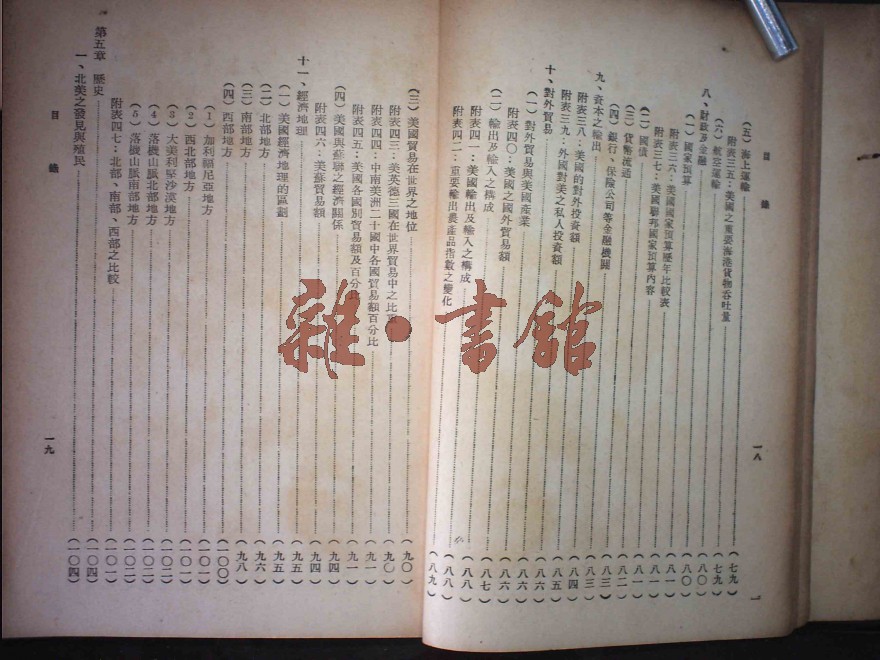 目錄
一八
(五)海上運輸……(七九)
附表三五:美國之重要海港貨物吞吐量……(七九)
(六)航空運輸……(八〇)
八、財政及金融……(八〇)
(一)國家預算……(八一)
附表三六:美國國家預算歷年比較表……(八一)
附表三七:美國聯邦國家預算內容……(八一)
(二)國債……(八一)
(三)貨幣流通……(八二)
(四)銀行、保險公司等金融機關……(八三)
九、資本之輸出……(八三)
附表三八:美國的對外投資額……(八四)
附表三九:外國對美之私人投資額……(八五)
十、對外貿易……(八六)
(一)對外貿易與美國產業……(八六)
附表四〇:美國之國外貿易額……(八六)
(二)輸出及輸入之構成……(八七)
附表四一:美國輸出及輸入之構成……(八八)
附表四二:重要輸出農產品指數之變化……(八九)
(三)美國貿易在世界之地位……(九〇)
附表四三:美英德三國在世界貿易中之比重……(九〇)
附表四四:中南美洲二十國中各國貿易額百分比……(九一)
附表四五:美國各國別貿易額及百分比……(九一)
(四)美國與蘇聯之經濟關係……(九四)
附表四六:美蘇貿易額……(九四)
十一、經濟地理……(九五)
(一)美國經濟地理的區劃……(九五)
(二)北部地方……(九六)
(三)南部地方……(九八)
(四)西部地方……(一〇〇)
(1)加利福尼亞地方……(一〇一)
(2)西北部地方……(一〇一)
(3)大美利堅沙漠地方……(一〇二)
(4)落機山脈北部地方……(一〇二)
(5)落機山脈南部地方……(一〇二)
附表四七:北部、南部、西部之比較……(一〇一)
第五章 歷史……(一〇四)
一、北美之發見與殖民……(一〇四)
目錄
一九
雜·書館